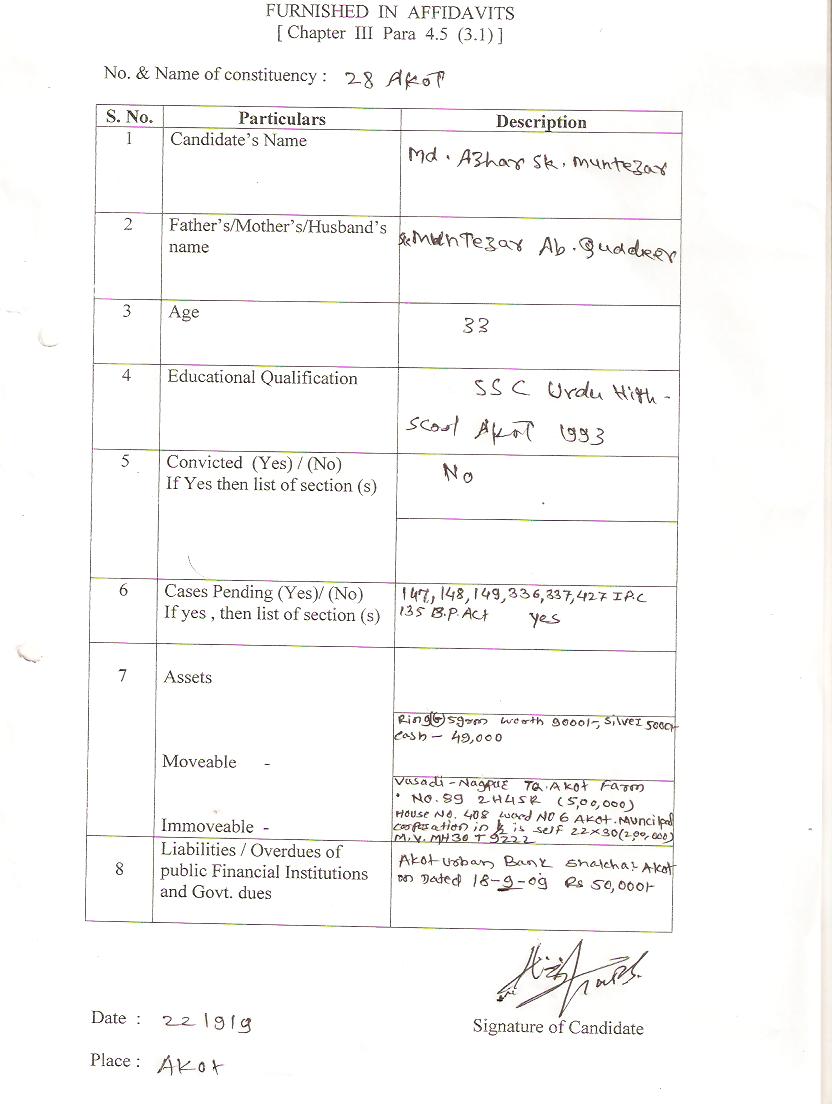 FURNISHED IN AFFIDAVITS
[ Chapter III Para 4.5 (3.1) ]
No. & Name of constituency : 28 AKOT
S. No. Particulars Description
1 Candidate's Name Md. Azhar Sk. Muntezar
2 Father's/Mother's/Husband's
name Sk Muntezar Ab. Quadeer
3 Age 33
4 Educational Qualification SSC Urdu High -
Scool AKOT 1993
5 Convicted (Yes) / (No) No
If Yes then list of section (s)
6 Cases Pending (Yes)/ (No) 147, 148, 149, 336, 337, 427 I.P.C
If yes , then list of section (s) 135 B.P. Act yes
7 Assets
Ring 5 gram worth 9000/-, Silver 5000/-
cash - 49,000
Moveable -
Vasadi - Nagpur Tq. Akot Farm
No. 59 2H45R (5,00,000)
House No. 408 ward No 6 Akot. Muncipal
Immoveable - corporation in is self 22x30 (2,00,000)
M.V. MH30 T 9222
8 Liabilities / Overdues of
public Financial Institutions
and Govt. dues
Akot Urban Bank Akot
on Dated 18-9-09 Rs 50,000/-
Signature of Candidate
Date : 22/9/9
Place : AKot